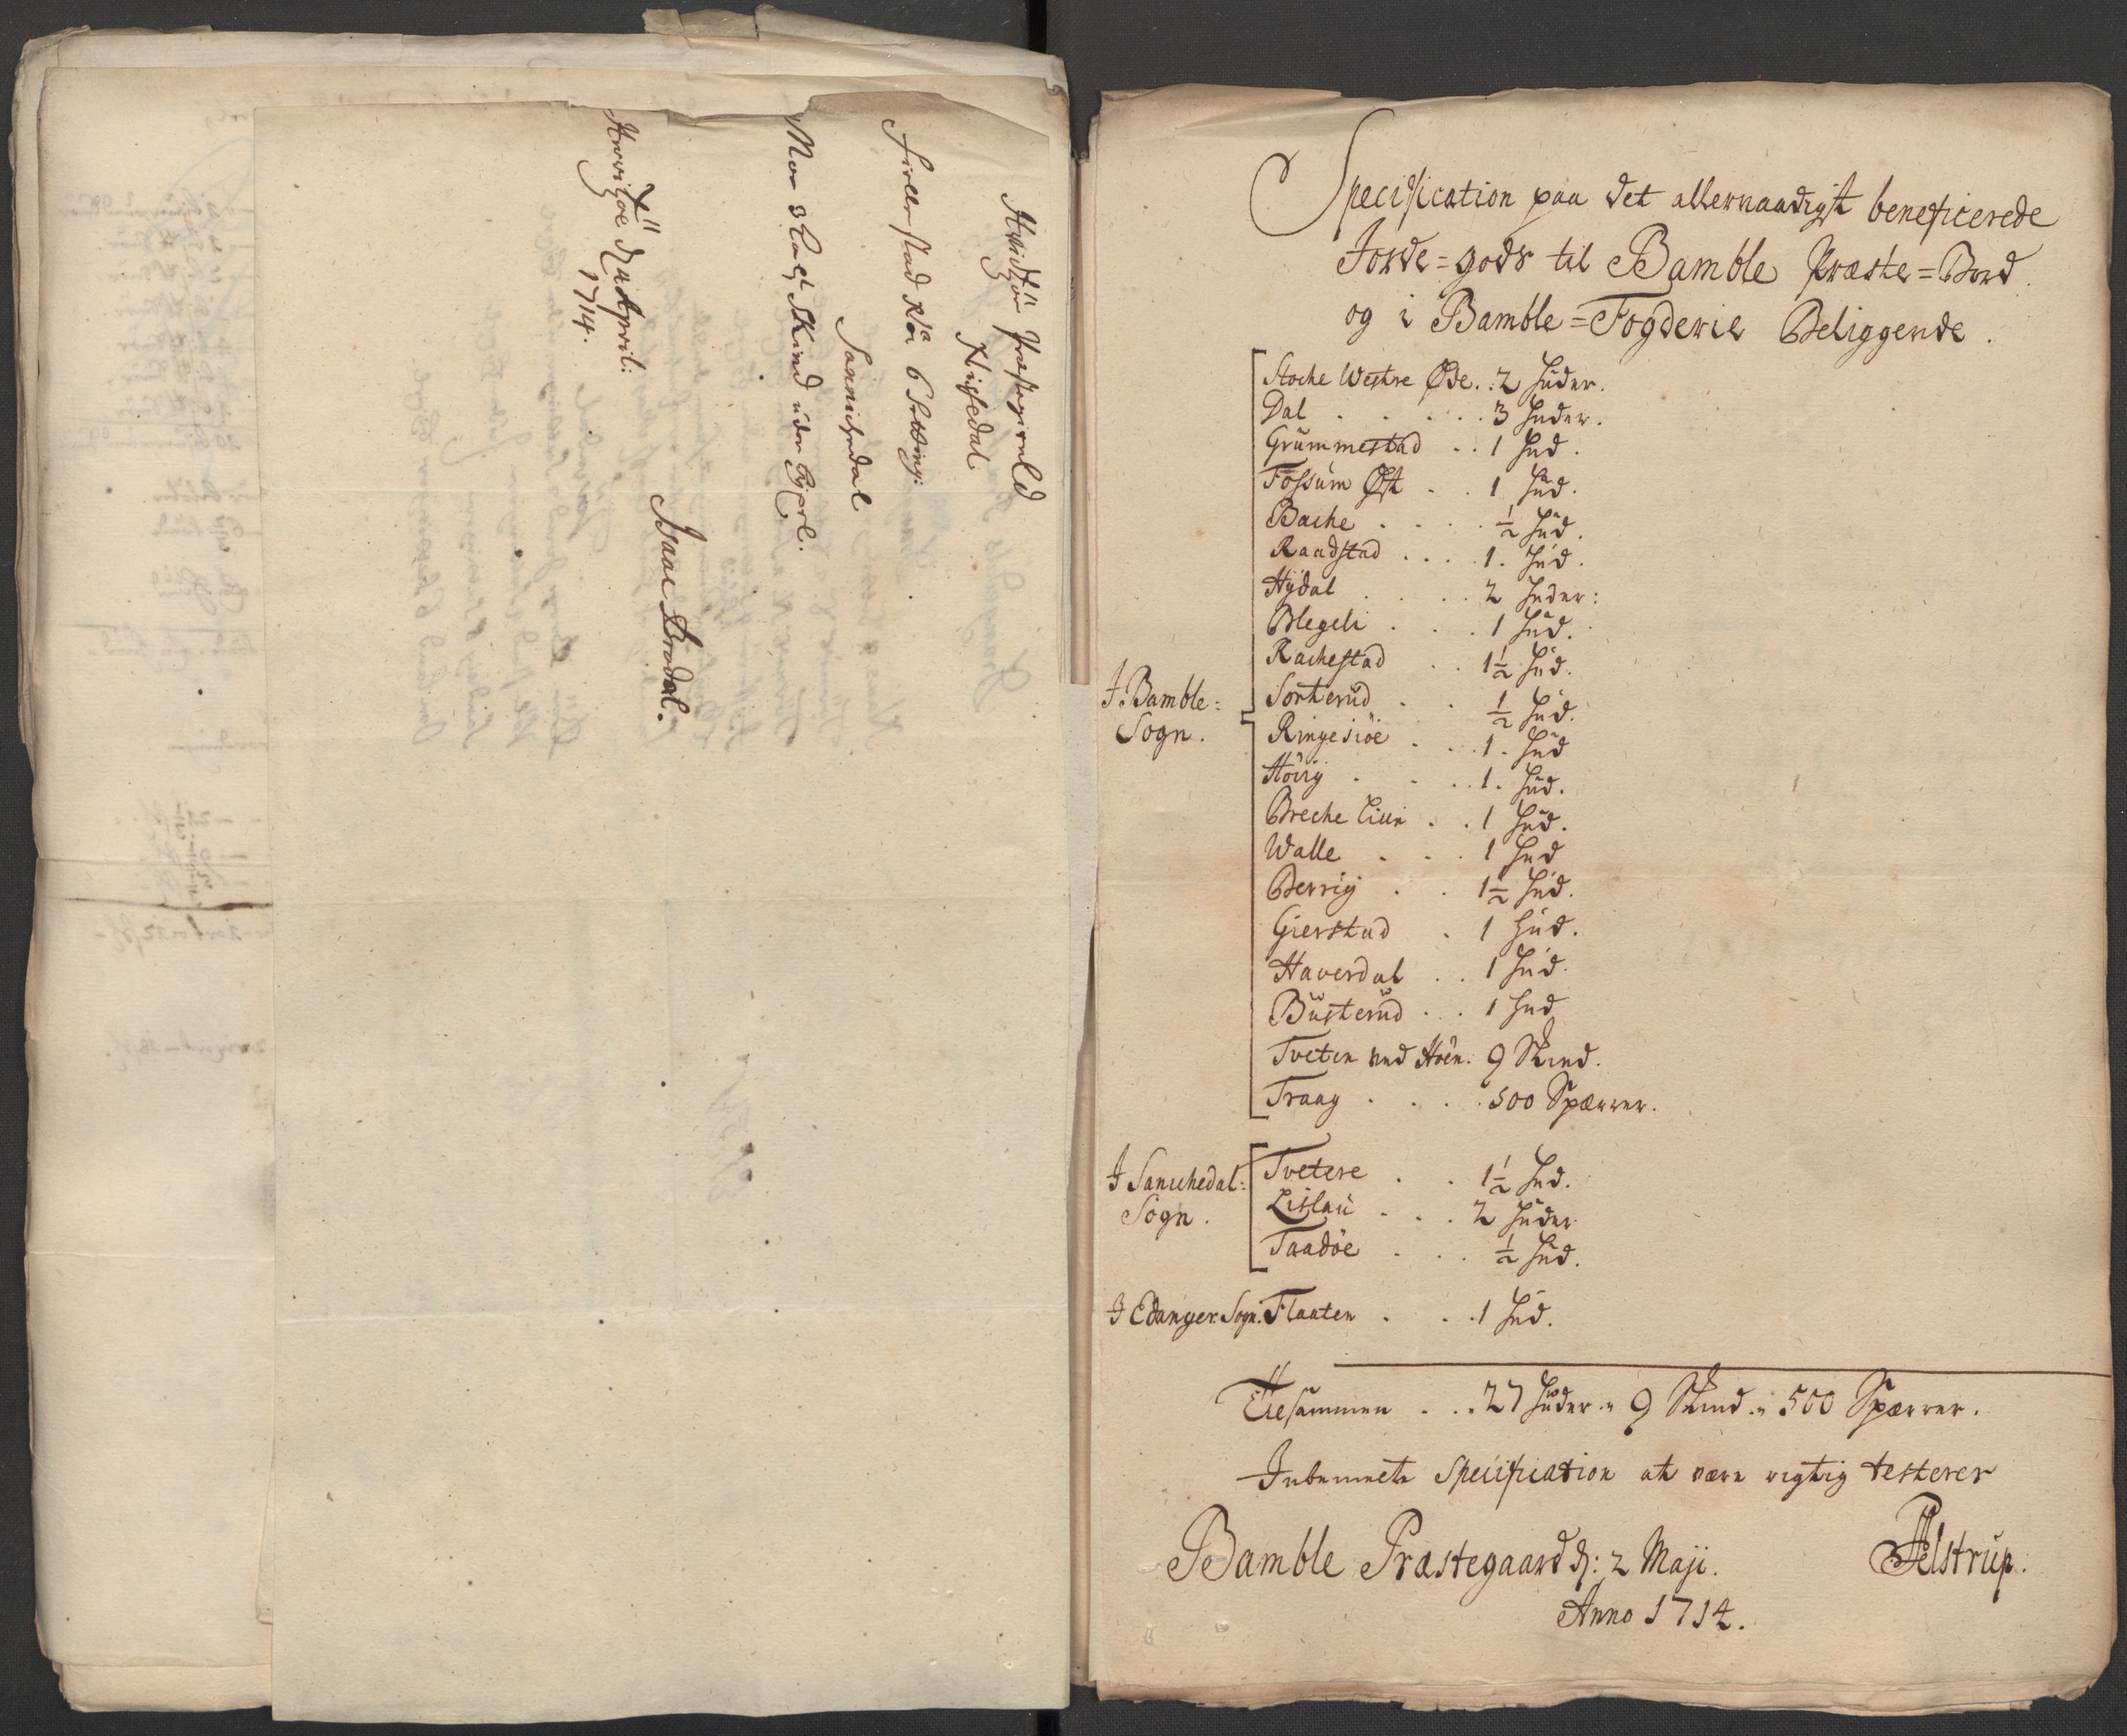 Præstegield
Kigsedal
Sannichedal
Skind
April:
1714.
Isaac Brodal.
Specification paa det allernaadigst beneficerede
Jorde=gods til Bamble Præste=Bord
og i Bamble=Fogderie Beliggende.
Stoche Westre Øde. . 2 huder.
Dal . . . . . 3 huder.
Grummestad . . 1 hud.
Fossum Øst . . 1 hud.
Bache . . . . ½ hud.
Raadstad . . . . 1. hud.
Hydal . . . . 2 huder:
Blegeli . . . 1 hud.
Rachestad . . 1½ hud.
I Bamble=
Sogn.
Sorterud . . ½ hud.
Ringesiöe . . . 1. hud
Hövig . . . 1. hud.
Breche . . 1 hud.
Walle . . . 1 hud
Berrig . . 1½ hud.
Gierstad . 1 hud.
Haverdal . . 1 hud.
Busterud . . . 1 hud
Tveten ved . 9 Skind.
Traag . . . . 500 Spærrer.
I Sanichedal=
Sogn.
Tvetere . . 1½ hud.
Lislau . . . 2 huder
Taadöe . . . ½ hud.
I Edanger. Sogn. Flaaten . . . 1 hud.
Tilsammen . . . 27 huder. 9 Skind. 500 Spærrer.
specification at være rigtig testerer
Bamble Præstegaard d: 2 Maji.
Anno 1714.
Pelstrup.